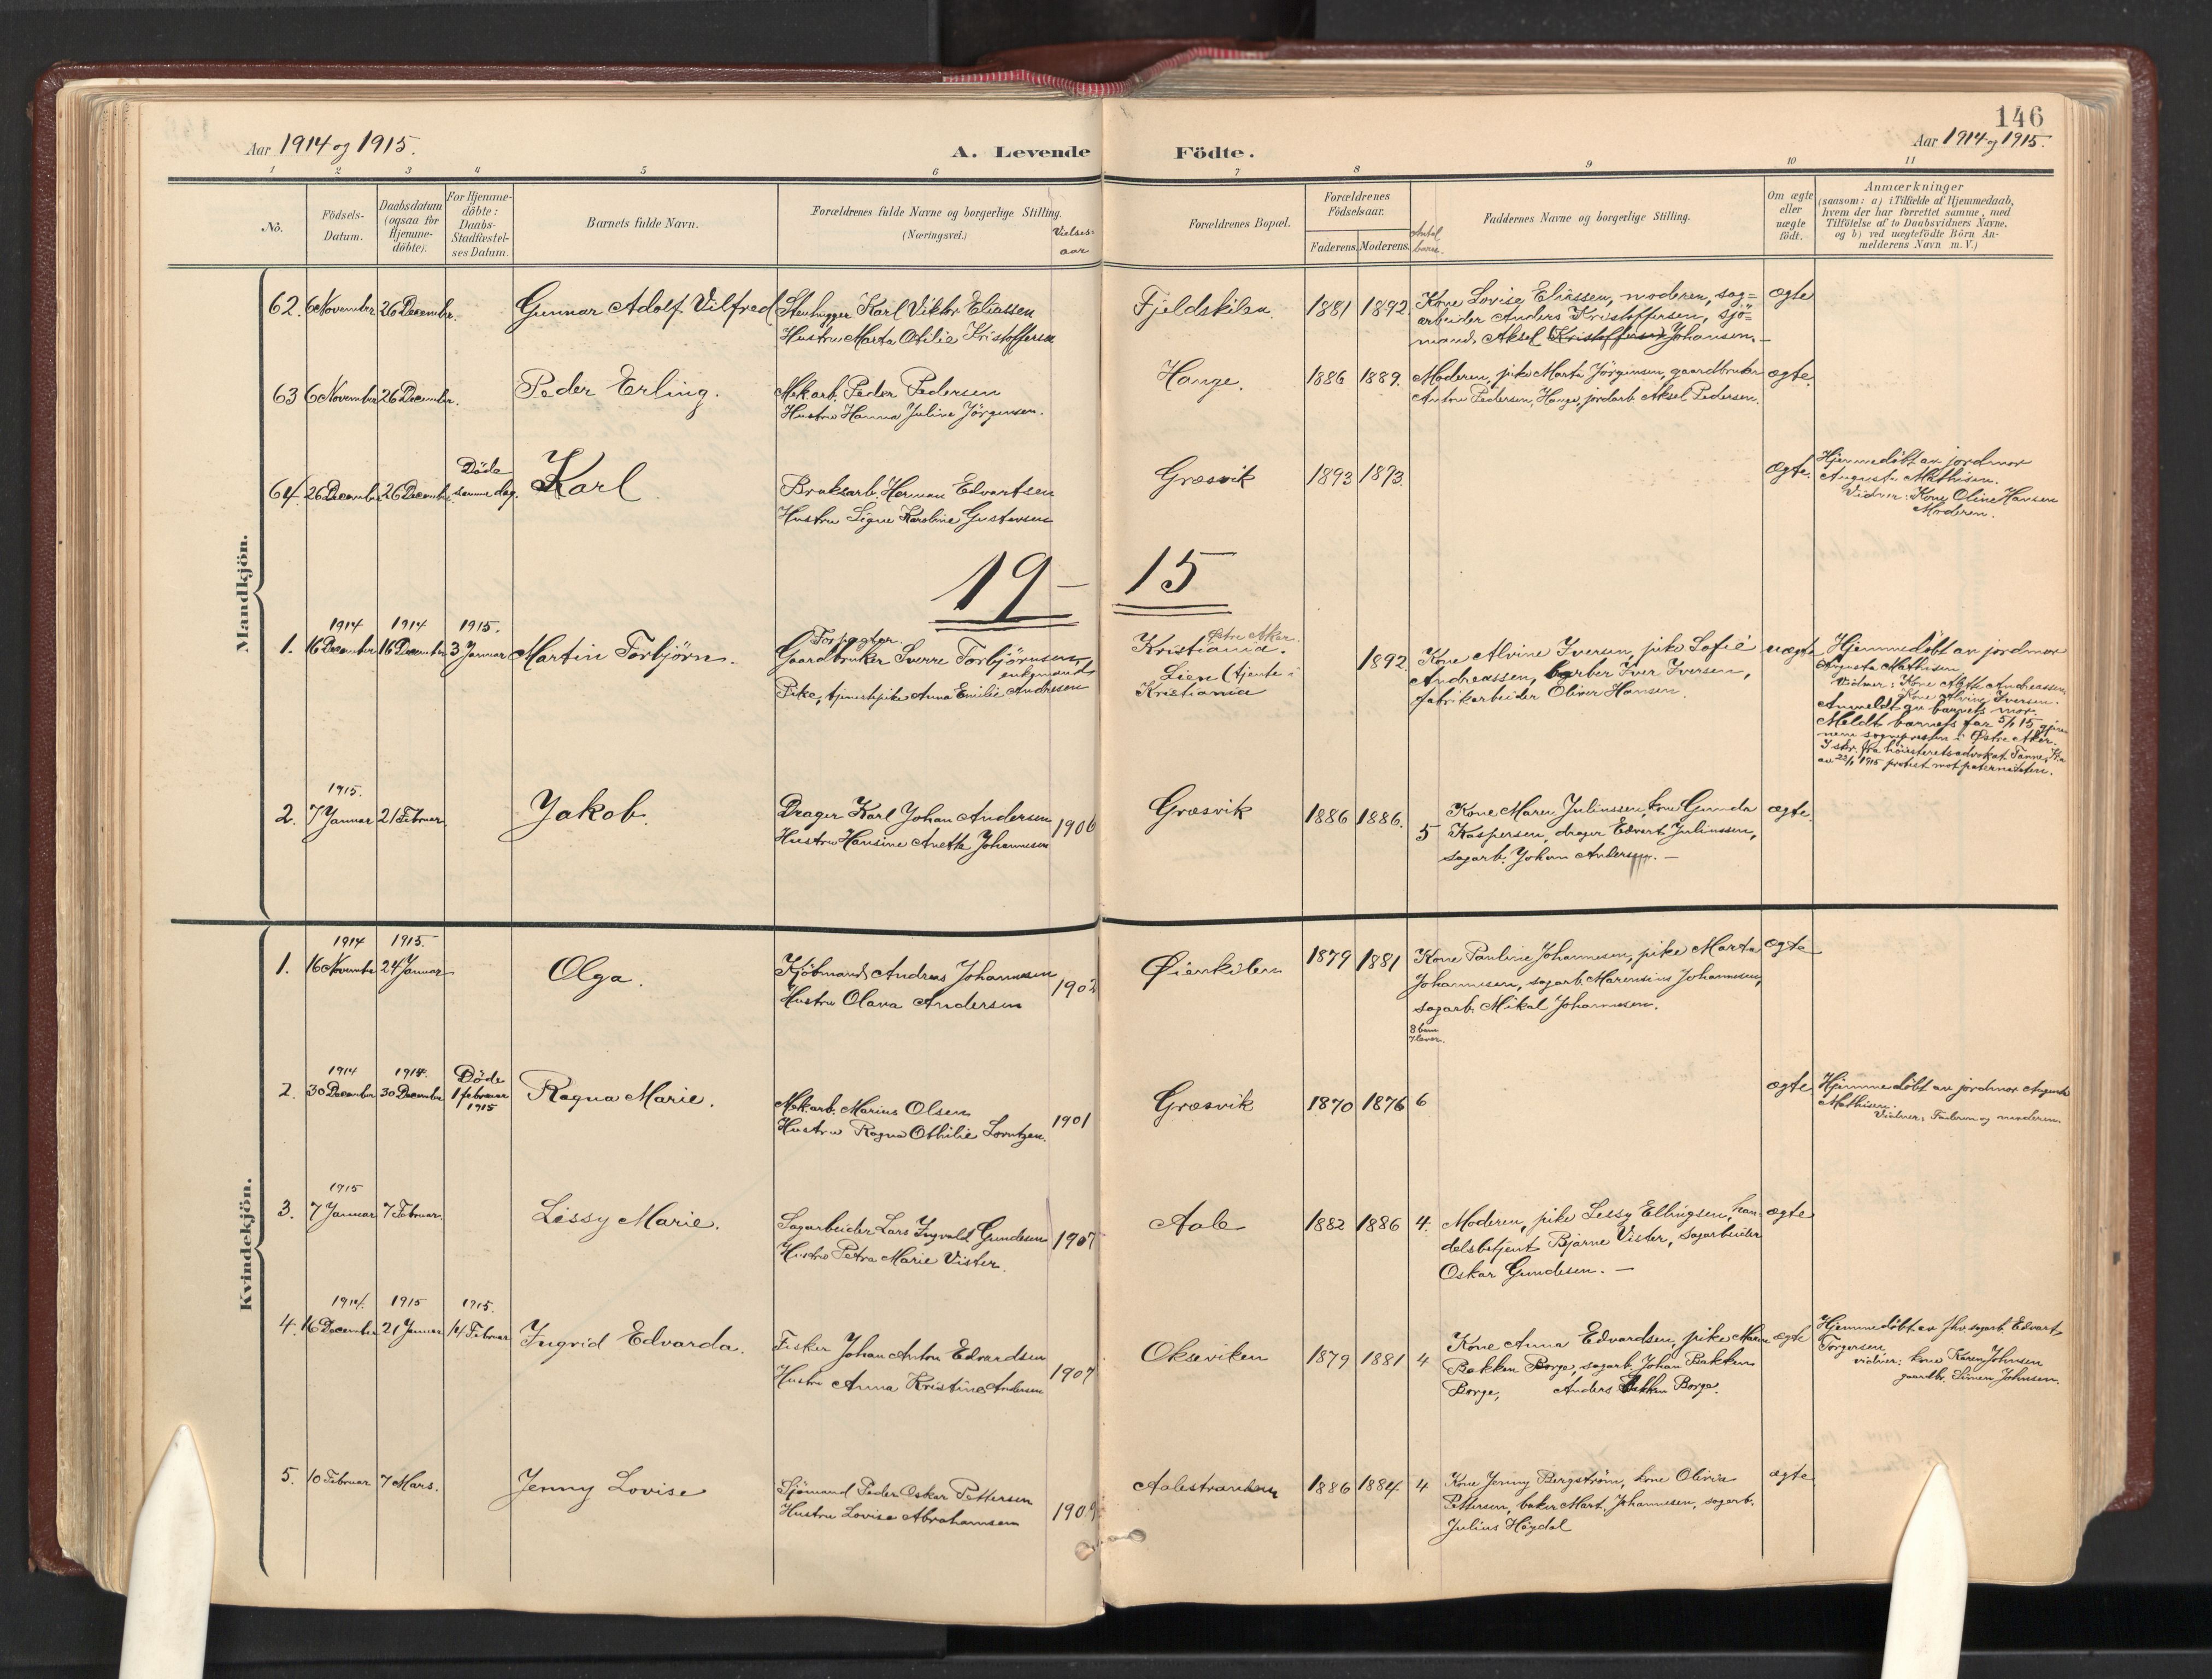 146
Aar 1914 og 1915.
A. Levende Födte.
Aar 1914 og 1915.
1 2 3 4 5 6 7 8 9 10 11
No.
Födsels-
Datum.
Daabsdatum
(ogsaa for
Hjemme-
döbte).
For Hjemme-
döbte:
Daabs-
Stadfæstel-
ses Datum.
Barnets fulde Navn.
Forældrenes fulde Navne og borgerlige Stilling.
(Næringsvei.)
Vielses-
aar
Forældrenes Bopæl.
Forældrenes
Födselsaar.
Faderens. Moderens.
Antal
barn.
Faddernes Navne og borgerlige Stilling.
Om ægte
eller
uægte
født.
Anmærkninger
(saasom: a) i Tilfælde af Hjemmedaab,
hvem der har forrettet samme, med
Tilföielse af to Daabsvidners Navne,
og b) ved uægtefödte Börn An-
melderens Navn m. V.)
Mandkjön.
62. 6 November 26 December. Gunnar Adolf Vilfred
Stenhugger Karl Viktor Eliassen
Hustru Marta Otilie Kristoffersen
Fjeldskilen. 1881 1892.
Kone Lovise Eliassen, moderen, sag=
arbeider Anders Kristoffersen, sjö=
mand, Aksel Kristoffersen Johansen.
ægte
63 6 November 26 December. Peder Erling.
Mek.arb. Peder Pedersen
Hustru Hanna Juline Jörgensen.
Hauge. 1886 1889.
Moderen, pike Marta Jörgensen, gaardbruker
Anton Pedersen, Hauge, jordarb. Aksel Pedersen.
ægte.
64. 26 December 26 December
Döde
samme dag.
Karl
Bruksarb. Herman Edvartsen
Hustru Signe Karoline Gustavsen
Græsvik 1893 1893.
ægte.
Hjemmedöbt av jordmor
Augusta Mathisen.
Vidner: Kone Oline Hansen
Moderen.
19 — 15
1914 1914 1915.
1. 16 December 16 December 3 Januar Martin Torbjörn.
Forpagter.
Gaardbruker Sverre Torbjörnsen,
enkemand
Pike, tjenestepike Anna Emilie Andresen
Østre Aker.
Kristiania.
Lien (tjente i
Kristiania
1892
Kone Alvine Iversen, pike Sofie
Andreassen, barber Iver Iversen,
fabrikarbeider Oliver Hansen.
uægte
Hjemmedöbt av jordmor
Augusta Mathisen
Vidner: Kone Andreassen
Kone Alvine Iversen.
Anmeldt av barnets mor.
Meldt barnets far 5/1 15 gjen-
nem sognepresten i Østre Aker.
I skr. fra höiesteretsadvokat
av 22/1 1915 protest mot paterniteten.
1915.
2. 7 Januar 21 Februar Jakob.
Drager Karl Johan Andersen
Hustru Hansine Anette Johannesen
1906
Græsvik 1886 1886. 5
Kone Maren Juliussen, kone Gunda
Kaspersen, drager Edvart Juliussen,
sagarb. Johan Andersen. —
ægte.
Kvindekjön.
1914 1915.
1. 16 November 24 Januar Olga.
Kjöbmand Andreas Johannesen
Hustru Olava Andersen
1902
Øienkilen 1879 1881
Kone Pauline Johannesen, pike Marta
Johannesen, sagarb. Marensius Johannesen,
sagarb. Mikal Johannesen.
8 barn
7 lever.
ægte
1914 1914.
2. 30 December 30 December
Döde
1 februar
1915
Ragna Marie.
Mek.arb. Marius Olsen
Hustru Ragna Othilie Lorntzen.
1901
Græsvik 1870 1876 6
ægte
Hjemmedöbt av jordmor Augusta
Mathisen.
Vidner: Faderen og moderen.
1915
3. 7 Januar 7 Februar. Lissy Marie.
Sagarbeider Lars Ingvald Gundesen
Hustru Petra Marie Vister.
1907
Aale 1882 1886 4.
Moderen, pike Lessy Ellingsen, han-
delsbetjent Bjarne Vister, sagarbeider
Oskar Gundesen. —
ægte
1914. 1915 1915.
4. 16 December 21 Januar 14 Februar Ingrid Edvarda.
Fisker Johan Anton Edvardsen
Hustru Anna Kristine Andersen
1907
Okseviken 1879 1881 4
Kone Anna Edvardsen, pike Marie
Bakken Borge, sagarb. Johan Bakken
Borge, Anders Bakken Borge.
ægte
Hjemmedöbt av fhv. sagarb. Edvart
Torgersen
vidner: kone Karen Johnsen
gaardbr. Simen Johnsen.
5. 10 Februar 7 Mars. Jenny Lovise
Sjömand Peder Oskar Pettersen
Hustru Lovise Abrahamsen
1909
Aalestranden 1886 1884 4
Kone Jenny Bergström, kone Olivia
Pettersen, baker Mart. Johannesen, sagarb.
Julius Höydal
ægte